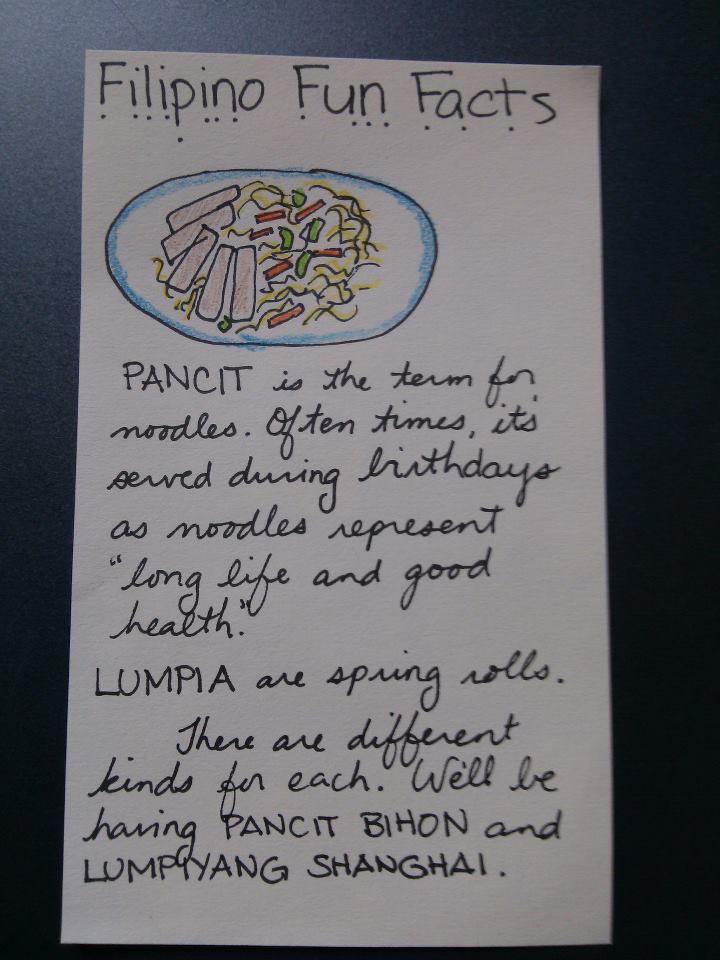 Filipino Fun Facts
PANCIT is the term for
noodles. Often times, it's
served during birthdays
as noodles represent
"long life and good
health."
LUMPIA are spring rolls.
There are different
kinds for each. We'll be
having PANCIT BIHON and
LUMPIYANG SHANGHAI.